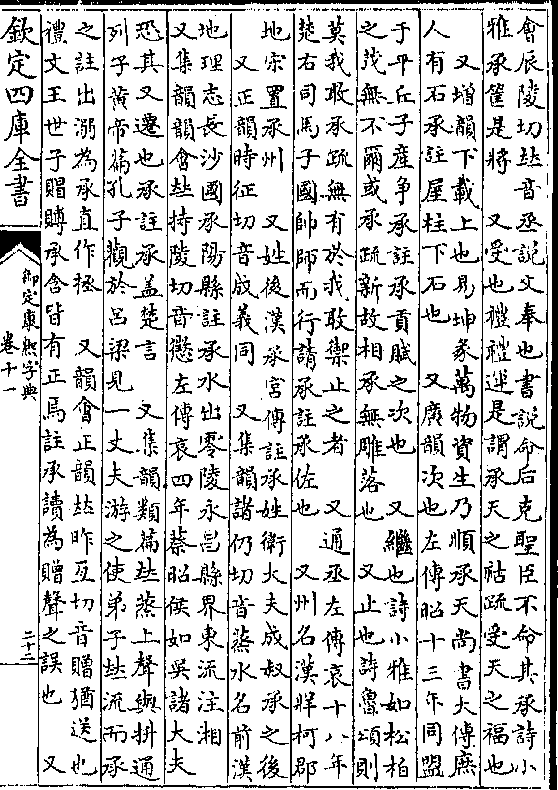 會辰陵切𠀤音丞說文奉也書說命后克聖臣不命其承詩小
雅承筐是將　又受也禮禮運是謂承天之祜疏受天之福也
又增韻下載上也易坤彖萬物資生乃順承天尚書大傳庶
人有石承註屋柱下石也　又廣韻次也左傳昭十三年同盟
于平丘子產爭承註承貢賦之次也　又繼也詩小雅如松柏
之茂無不爾或承疏新故相承無雕落也　又止也詩魯頌則
莫我敢承疏無有於我敢禦止之者　又通丞左傳哀十八年
楚右司馬子國帥師而行請承註承佐也　又州名漢牂柯郡
地宋置承州　又姓後漢承宮傳註承姓衛大夫成叔承之後
又正韻時征切音成義同　又集韻諸仍切音蒸水名前漢
地理志長沙國承陽縣註承水出零陵永昌縣界東流注湘
又集韻韻會𠀤持陵切音懲左傳哀四年蔡昭侯如吳諸大夫
恐其又遷也承註承蓋楚言　又集韻類篇𠀤蒸上聲與抍通
列子黃帝篇孔子觀於呂梁見一丈夫游之使弟子𠀤流而承
之註出溺為承直作拯　又韻會正韻𠀤昨亙切音贈猶送也
禮文王世子賵賻承含皆有正焉註承讀為贈聲之誤也　又
欽定四庫全書
御定康熙字典
卷十一
二十二